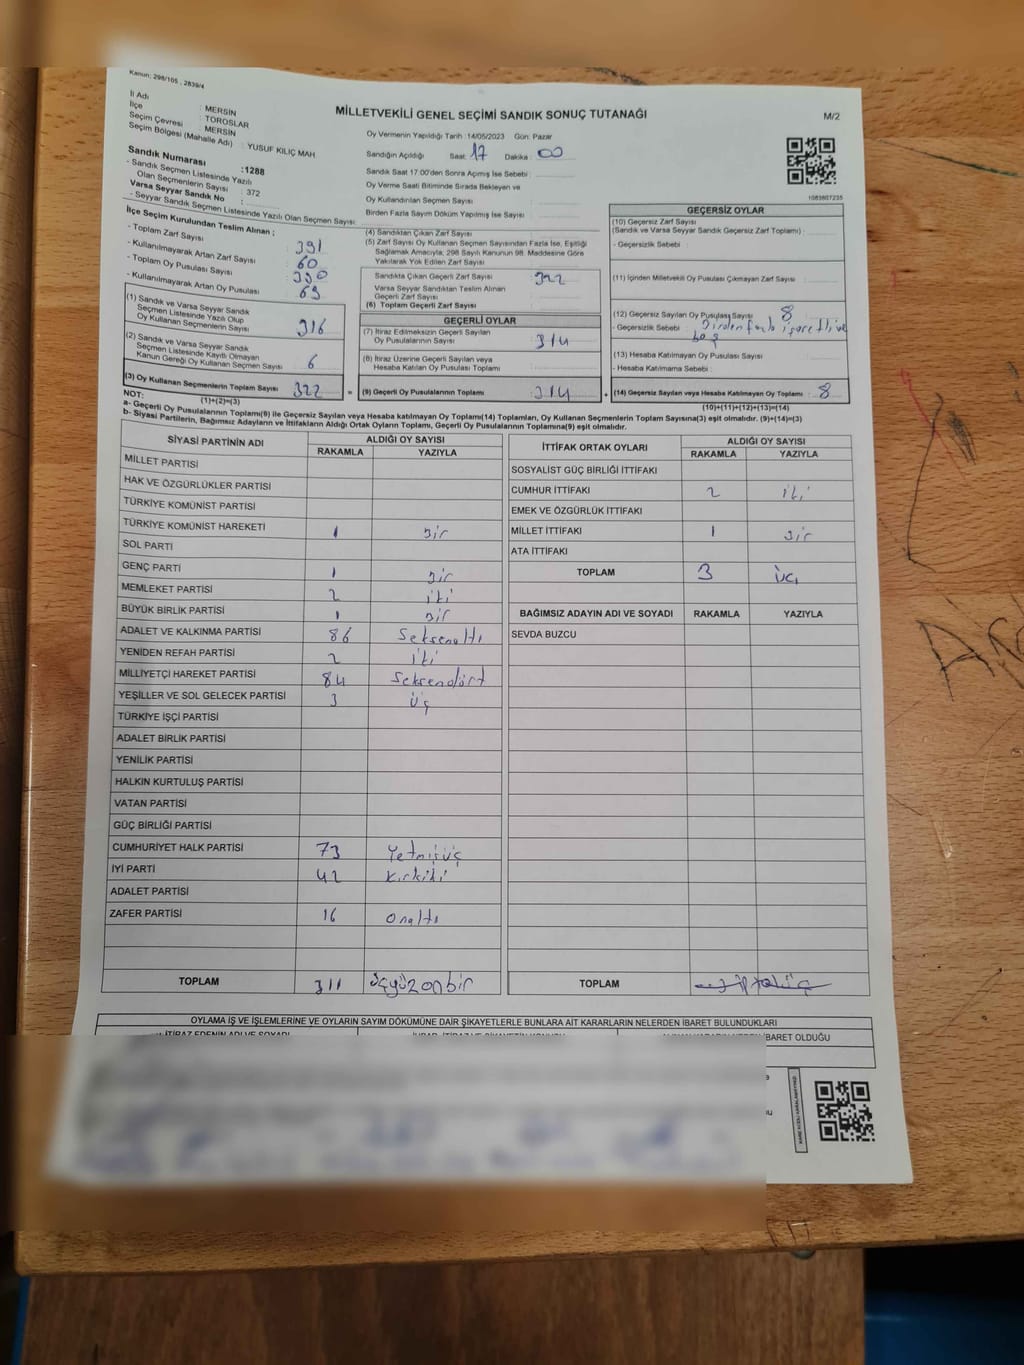 Kanun: 298/105 , 2839/4
MİLLETVEKİLİ GENEL SEÇİMİ SANDIK SONUÇ TUTANAĞI
M/2
İl Adı : MERSİN
İlçe : TOROSLAR
Seçim Çevresi : MERSİN
Seçim Bölgesi (Mahalle Adı) : YUSUF KILIÇ MAH
Sandık Numarası :1288
- Sandık Seçmen Listesinde Yazılı
Olan Seçmenlerin Sayısı : 372
Varsa Seyyar Sandık No :
- Seyyar Sandık Seçmen Listesinde Yazılı Olan Seçmen Sayısı:
Oy Vermenin Yapıldığı Tarih :14/05/2023 Gün: Pazar
Sandığın Açıldığı Saat: 17 Dakika : 00
Sandık Saat 17.00'den Sonra Açılmış İse Sebebi :
Oy Verme Saati Bitiminde Sırada Bekleyen ve
Oy Kullandırılan Seçmen Sayısı :
Birden Fazla Sayım Döküm Yapılmış İse Sayısı :
1083807235
İlçe Seçim Kurulundan Teslim Alınan ;
- Toplam Zarf Sayısı : 391
- Kullanılmayarak Artan Zarf Sayısı : 60
- Toplam Oy Pusulası Sayısı : 390
- Kullanılmayarak Artan Oy Pusulası : 69
(1) Sandık ve Varsa Seyyar Sandık
Seçmen Listesinde Yazılı Olup
Oy Kullanan Seçmenlerin Sayısı : 316
(2) Sandık ve Varsa Seyyar Sandık
Seçmen Listesinde Kayıtlı Olmayan
Kanun Gereği Oy Kullanan Seçmen Sayısı : 6
(3) Oy Kullanan Seçmenlerin Toplam Sayısı : 322
(1)+(2)=(3)
(4) Sandıktan Çıkan Zarf Sayısı :
(5) Zarf Sayısı Oy Kullanan Seçmen Sayısından Fazla İse, Eşitliği
Sağlamak Amacıyla; 298 Sayılı Kanunun 98. Maddesine Göre
Yakılarak Yok Edilen Zarf Sayısı :
Sandıkta Çıkan Geçerli Zarf Sayısı : 322
Varsa Seyyar Sandıktan Teslim Alınan
Geçerli Zarf Sayısı :
(6) Toplam Geçerli Zarf Sayısı :
GEÇERLİ OYLAR
(7) İtiraz Edilmeksizin Geçerli Sayılan
Oy Pusulalarının Sayısı : 314
(8) İtiraz Üzerine Geçerli Sayılan veya
Hesaba Katılan Oy Pusulaları Toplamı :
= (9) Geçerli Oy Pusulalarının Toplamı : 314
GEÇERSİZ OYLAR
(10) Geçersiz Zarf Sayısı
(Sandık ve Varsa Seyyar Sandık Geçersiz Zarf Toplamı) :
- Geçersizlik Sebebi :
(11) İçinden Milletvekili Oy Pusulası Çıkmayan Zarf Sayısı :
(12) Geçersiz Sayılan Oy Pusulası Sayısı : 8
- Geçersizlik Sebebi : Birden fazla işaretli ve
boş
(13) Hesaba Katılmayan Oy Pusulası Sayısı :
- Hesaba Katılmama Sebebi :
+ (14) Geçersiz Sayılan veya Hesaba Katılmayan Oy Toplamı : 8
(10)+(11)+(12)+(13)=(14)
NOT:
a- Geçerli Oy Pusulalarının Toplamı(9) ile Geçersiz Sayılan veya Hesaba katılmayan Oy Toplamı(14) Toplamları, Oy Kullanan Seçmenlerin Toplam Sayısına(3) eşit olmalıdır. (9)+(14)=(3)
b- Siyasi Partilerin, Bağımsız Adayların ve İttifakların Aldığı Ortak Oyların Toplamı, Geçerli Oy Pusulalarının Toplamına(9) eşit olmalıdır.
SİYASİ PARTİNİN ADI ALDIĞI OY SAYISI
RAKAMLA YAZIYLA
MİLLET PARTİSİ
HAK VE ÖZGÜRLÜKLER PARTİSİ
TÜRKİYE KOMÜNİST PARTİSİ
TÜRKİYE KOMÜNİST HAREKETİ 1 Bir
SOL PARTİ
GENÇ PARTİ 1 Bir
MEMLEKET PARTİSİ 2 iki
BÜYÜK BİRLİK PARTİSİ 1 Bir
ADALET VE KALKINMA PARTİSİ 86 Seksenaltı
YENİDEN REFAH PARTİSİ 2 iki
MİLLİYETÇİ HAREKET PARTİSİ 84 Seksendört
YEŞİLLER VE SOL GELECEK PARTİSİ 3 üç
TÜRKİYE İŞÇİ PARTİSİ
ADALET BİRLİK PARTİSİ
YENİLİK PARTİSİ
HALKIN KURTULUŞ PARTİSİ
VATAN PARTİSİ
GÜÇ BİRLİĞİ PARTİSİ
CUMHURİYET HALK PARTİSİ 73 Yetmişüç
İYİ PARTİ 42 Kırkiki
ADALET PARTİSİ
ZAFER PARTİSİ 16 Onaltı
TOPLAM 311 üçyüzonbir
İTTİFAK ORTAK OYLARI ALDIĞI OY SAYISI
RAKAMLA YAZIYLA
SOSYALİST GÜÇ BİRLİĞİ İTTİFAKI
CUMHUR İTTİFAKI 2 iki
EMEK VE ÖZGÜRLÜK İTTİFAKI
MİLLET İTTİFAKI 1 Bir
ATA İTTİFAKI
TOPLAM 3 üç
BAĞIMSIZ ADAYIN ADI VE SOYADI RAKAMLA YAZIYLA
SEVDA BUZCU
TOPLAM
OYLAMA İŞ VE İŞLEMLERİNE VE OYLARIN SAYIM DÖKÜMÜNE DAİR ŞİKAYETLERLE BUNLARA AİT KARARLARIN NELERDEN İBARET BULUNDUKLARI
İBARET OLDUĞU